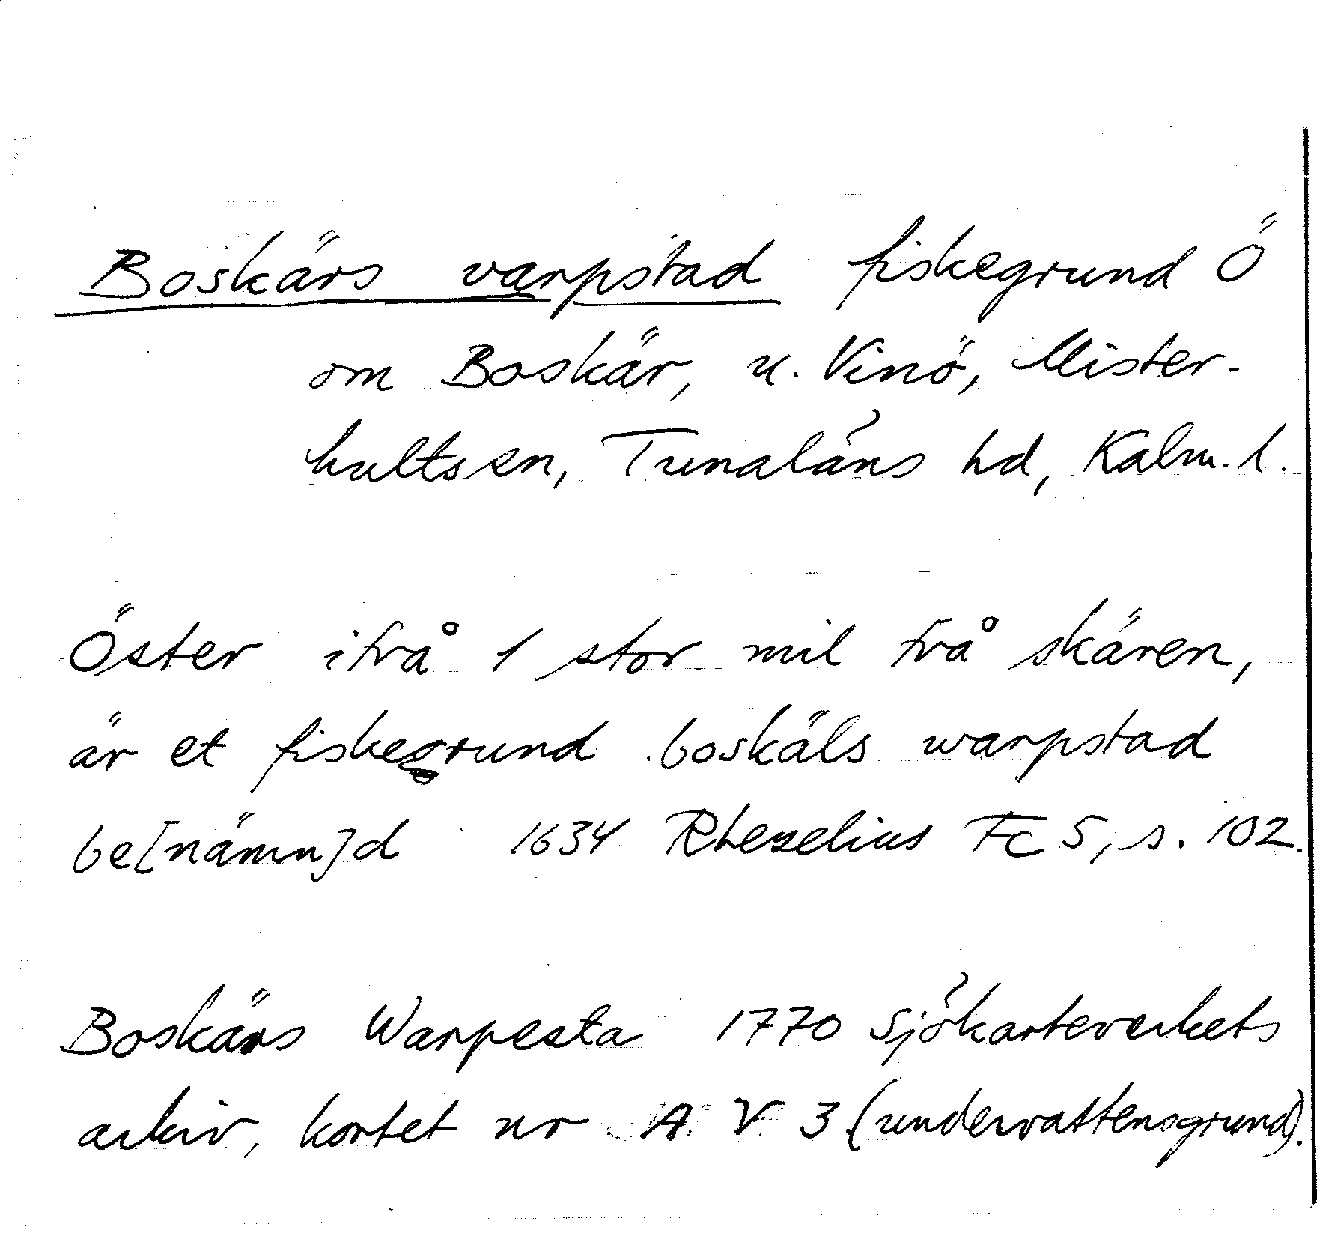 Boskärs varpstad fiskegrund Ö
om Boskär, u. Vinö, Mister-
hultssn, Tunaläns hd, Kalm. l.
Öster ifrå 1 stor mil frå skären,
är et fiskegrund boskäls warpstad
be[nämn]d 1634 Rhezelius Fc 5, s. 102.
Boskärs Warpesta 1770 Sjökarteverkets
arkiv, kortet nr A V 3 (undervattensgrund).